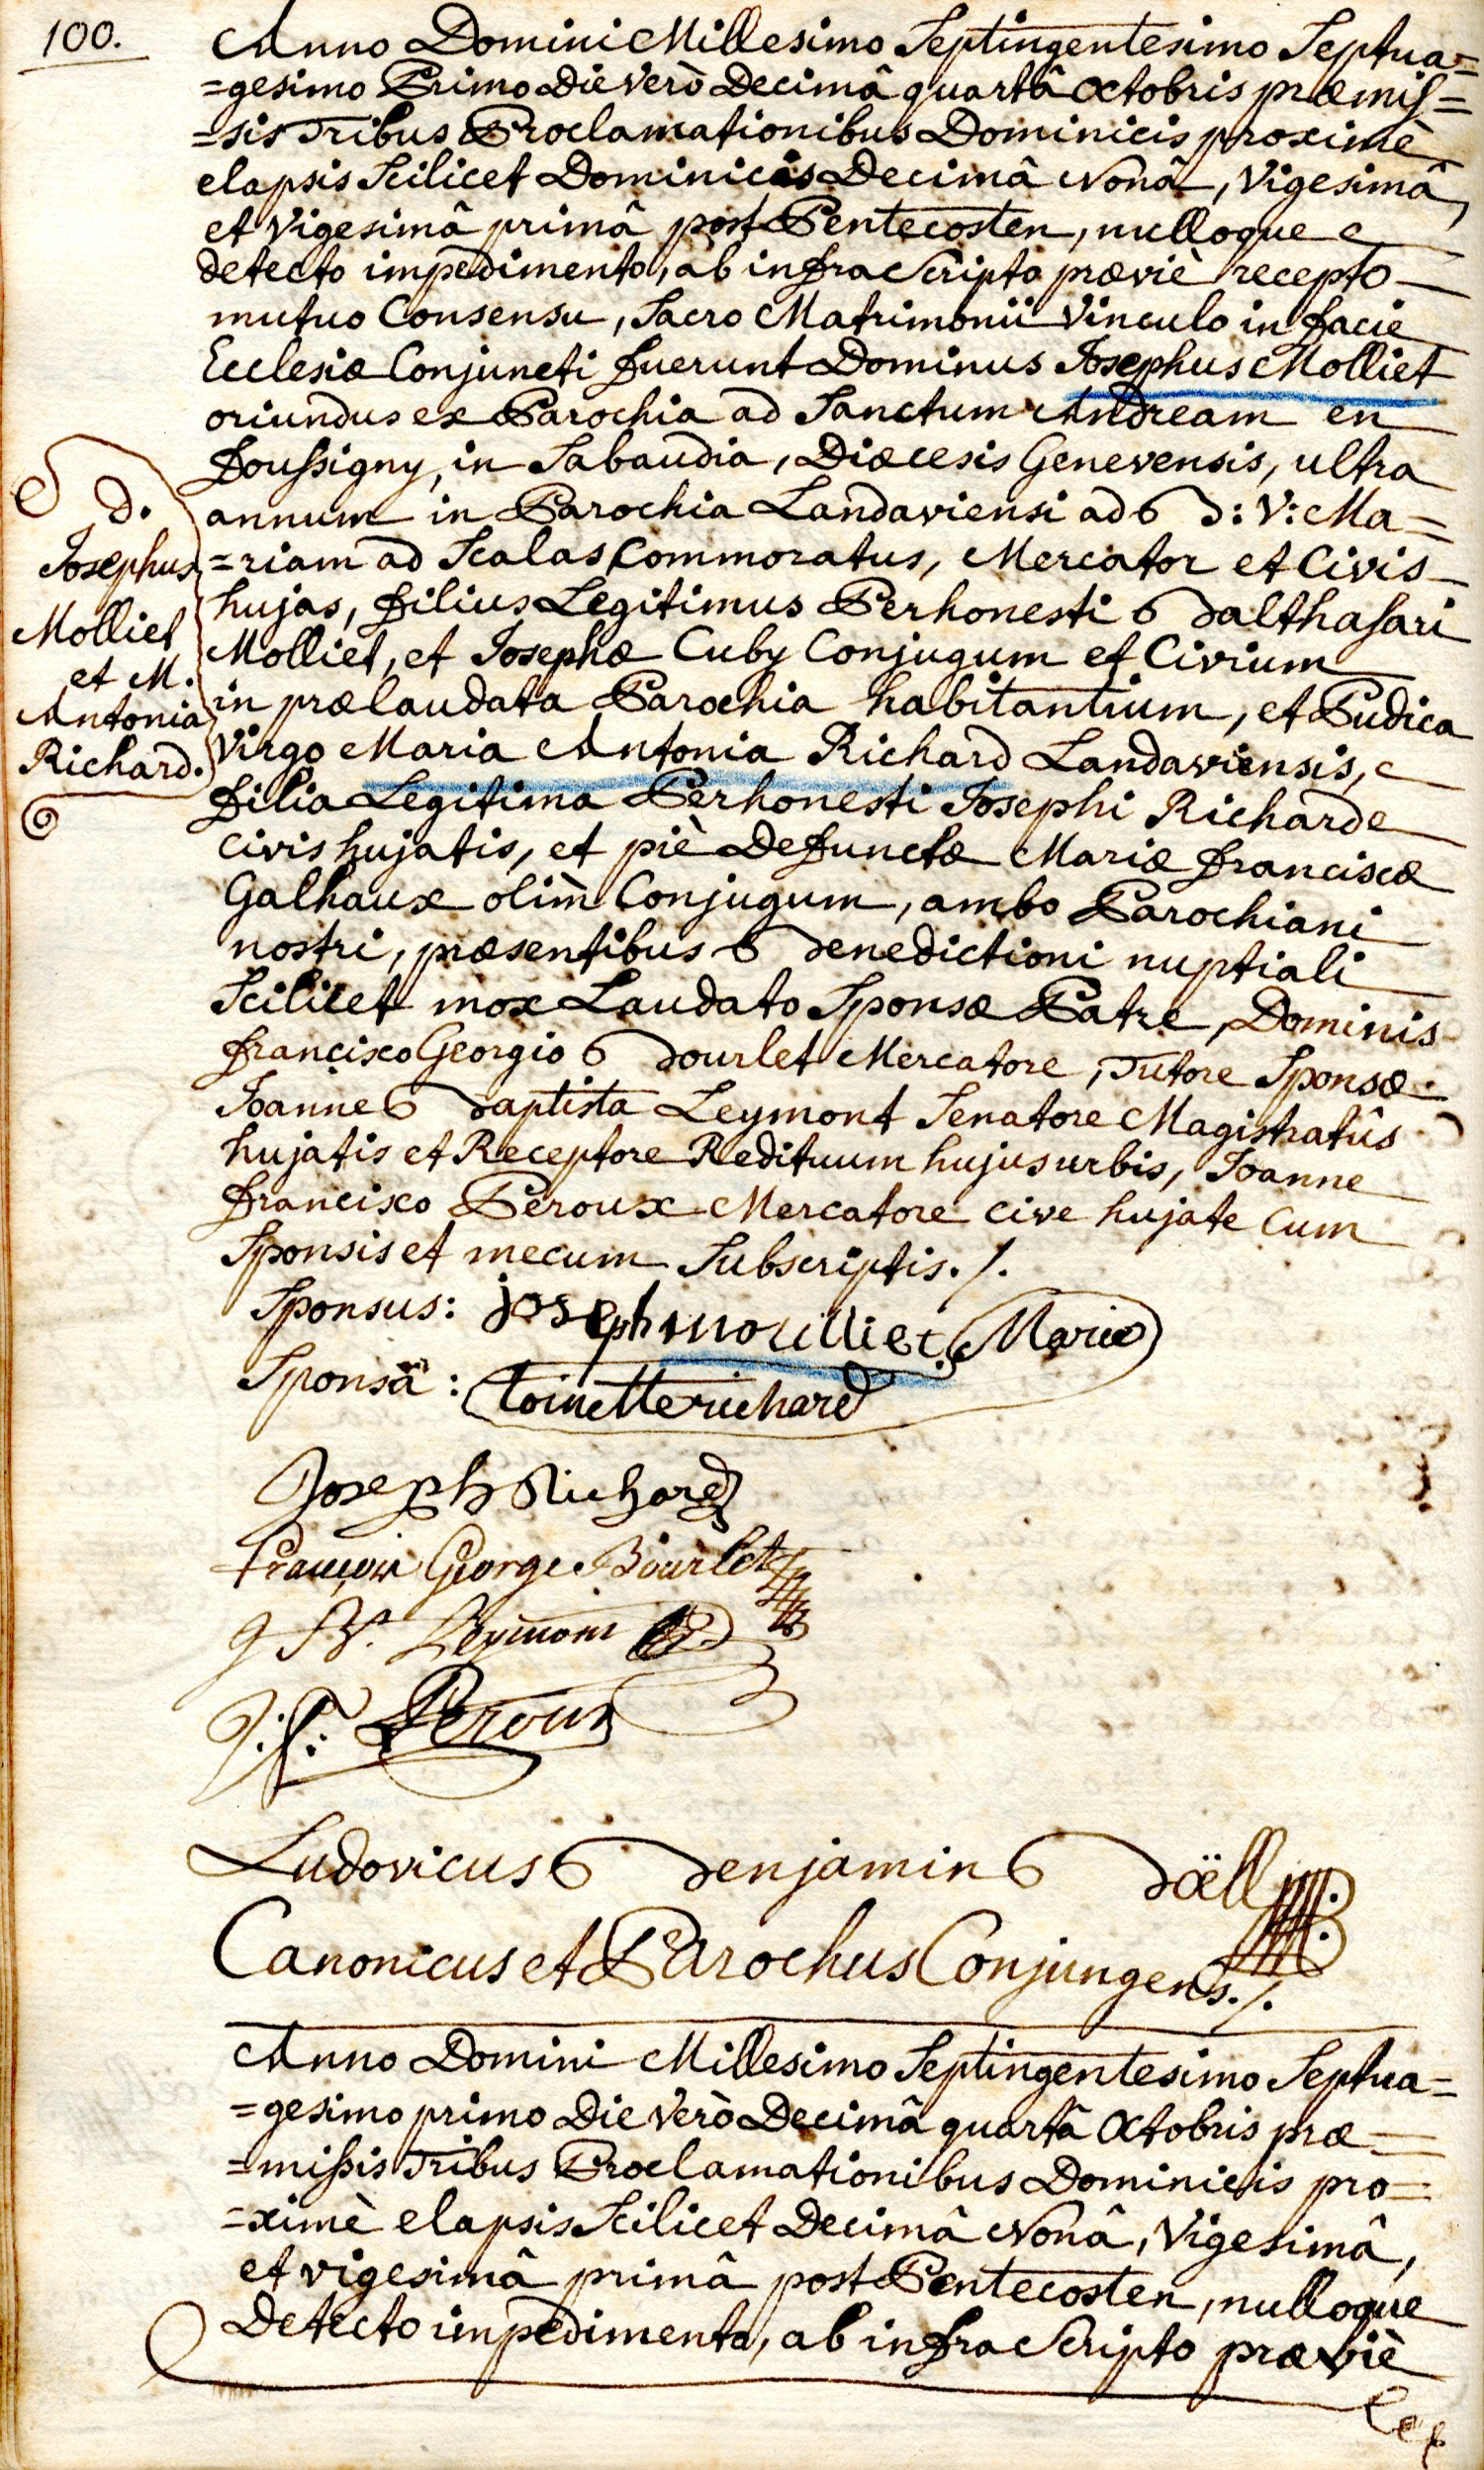 100.
Anno Domini Millesimo Septingentesimo Septua=
=gesimo Primo Die verò Decimâ quartâ Octobris præmis=
=sis Tribus Proclamationibus Dominicis proximè
elapsis Scilicet Dominicis Decimâ Nonâ, Vigesimâ,
et Vigesimâ primâ post Pentecosten, nulloque
detecto impedimento, ab infra Scripto præviè recepto
mutuo Consensu, Sacro Matrimonii Vinculo in facie
Ecclesiæ Conjuncti fuerunt Dominus Josephus Molliet
oriundus ex Parochia ad Sanctum Andream en
foussigny, in Sabaudia, Diæcesis Genevensis, ultra
annum in Parochia Landaviensi ad B: V: Ma=
=riam ad Scalas Commoratus, Mercator et Civis
hujas, filius Legitimus Perhonesti Balthasari
Molliet, et Josephæ Cuby Conjugum et Civium
in prælaudata Parochia habitantium, et Pudica
Virgo Maria Antonia Richard Landaviensis,
filia Legitima Perhonesti Josephi Richard
Civis hujatis, et piè Defunctæ Mariæ franciscæ
Galhaux olim Conjugum, ambo Parochiani
nostri, præsentibus Benedictioni nuptiali
Scilicet mox Laudato Sponsæ Patre, Dominis
francisco Georgio Bourlet Mercatore, Tutore Sponsæ
Joanne Baptista Leymont Senatore Magistratûs
hujatis et Receptore Redituum hujus urbis, Joanne
francisco Peroux Mercatore cive hujate Cum
Sponsis et mecum Subscriptis./.
D.
Josephus
Molliet
et M.
Antonia
Richard.
Sponsus: joseph moulliet Marie
Sponsa: toinette richard
Joseph Richard
François George Bourlet
J Bt. Leymont
J. f. Peroux
Ludovicus Benjamin Böell
Canonicus et Parochus Conjungens./.
Anno Domini Millesimo Septingentesimo Septua=
=gesimo primo Die verò Decimâ quartâ Octobris præ=
=missis Tribus Proclamationibus Dominicis pro=
=ximè elapsis Scilicet Decimâ Nonâ, Vigesimâ,
et vigesimâ primâ post Pentecosten, nulloque
Detecto impedimento, ab infra Scripto præviè